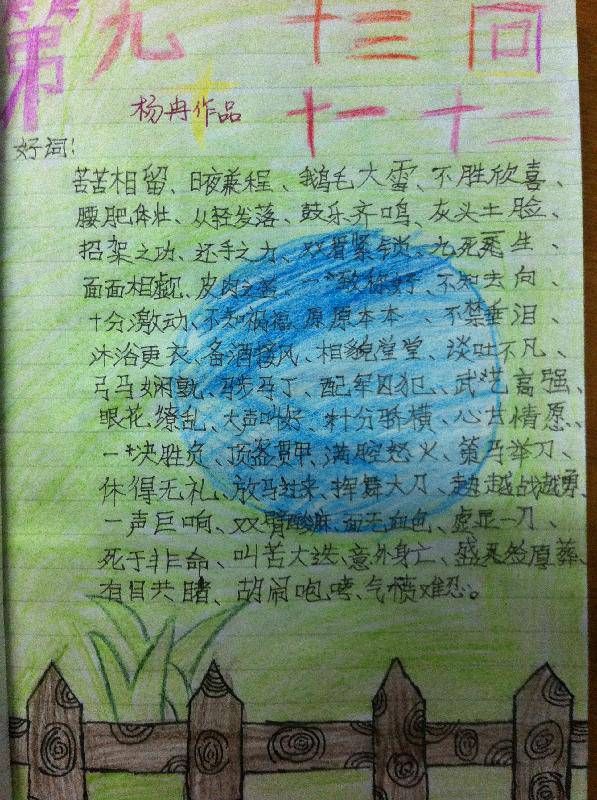 第九 十三回
十 十一 十二
杨冉作品
好词:
苦苦相留、日夜兼程、鹅毛大雪、不胜欣喜、
腰肥体壮、从轻发落、鼓乐齐鸣、灰头土脸、
招架之功、还手之力、双眉紧锁、九死一生、
面面相觑、皮肉之苦、一致称好、不知去向、
十分激动、不知祸福、原原本本、不禁垂泪、
沐浴更衣、备酒接风、相貌堂堂、谈吐不凡、
弓马娴熟、步马丁、配军囚犯、武艺高强、
眼花缭乱、大声叫好、十分骄横、心甘情愿、
一决胜负、顶盔贯甲、满腔怒火、策马举刀、
休得无礼、放马过来、挥舞大刀、越战越勇、
一声巨响、双臂酸麻、面无血色、虚晃一刀、
死于非命、叫苦不迭、意外身亡、盛殓厚葬、
有目共睹、胡闹咆哮、气愤难忍。